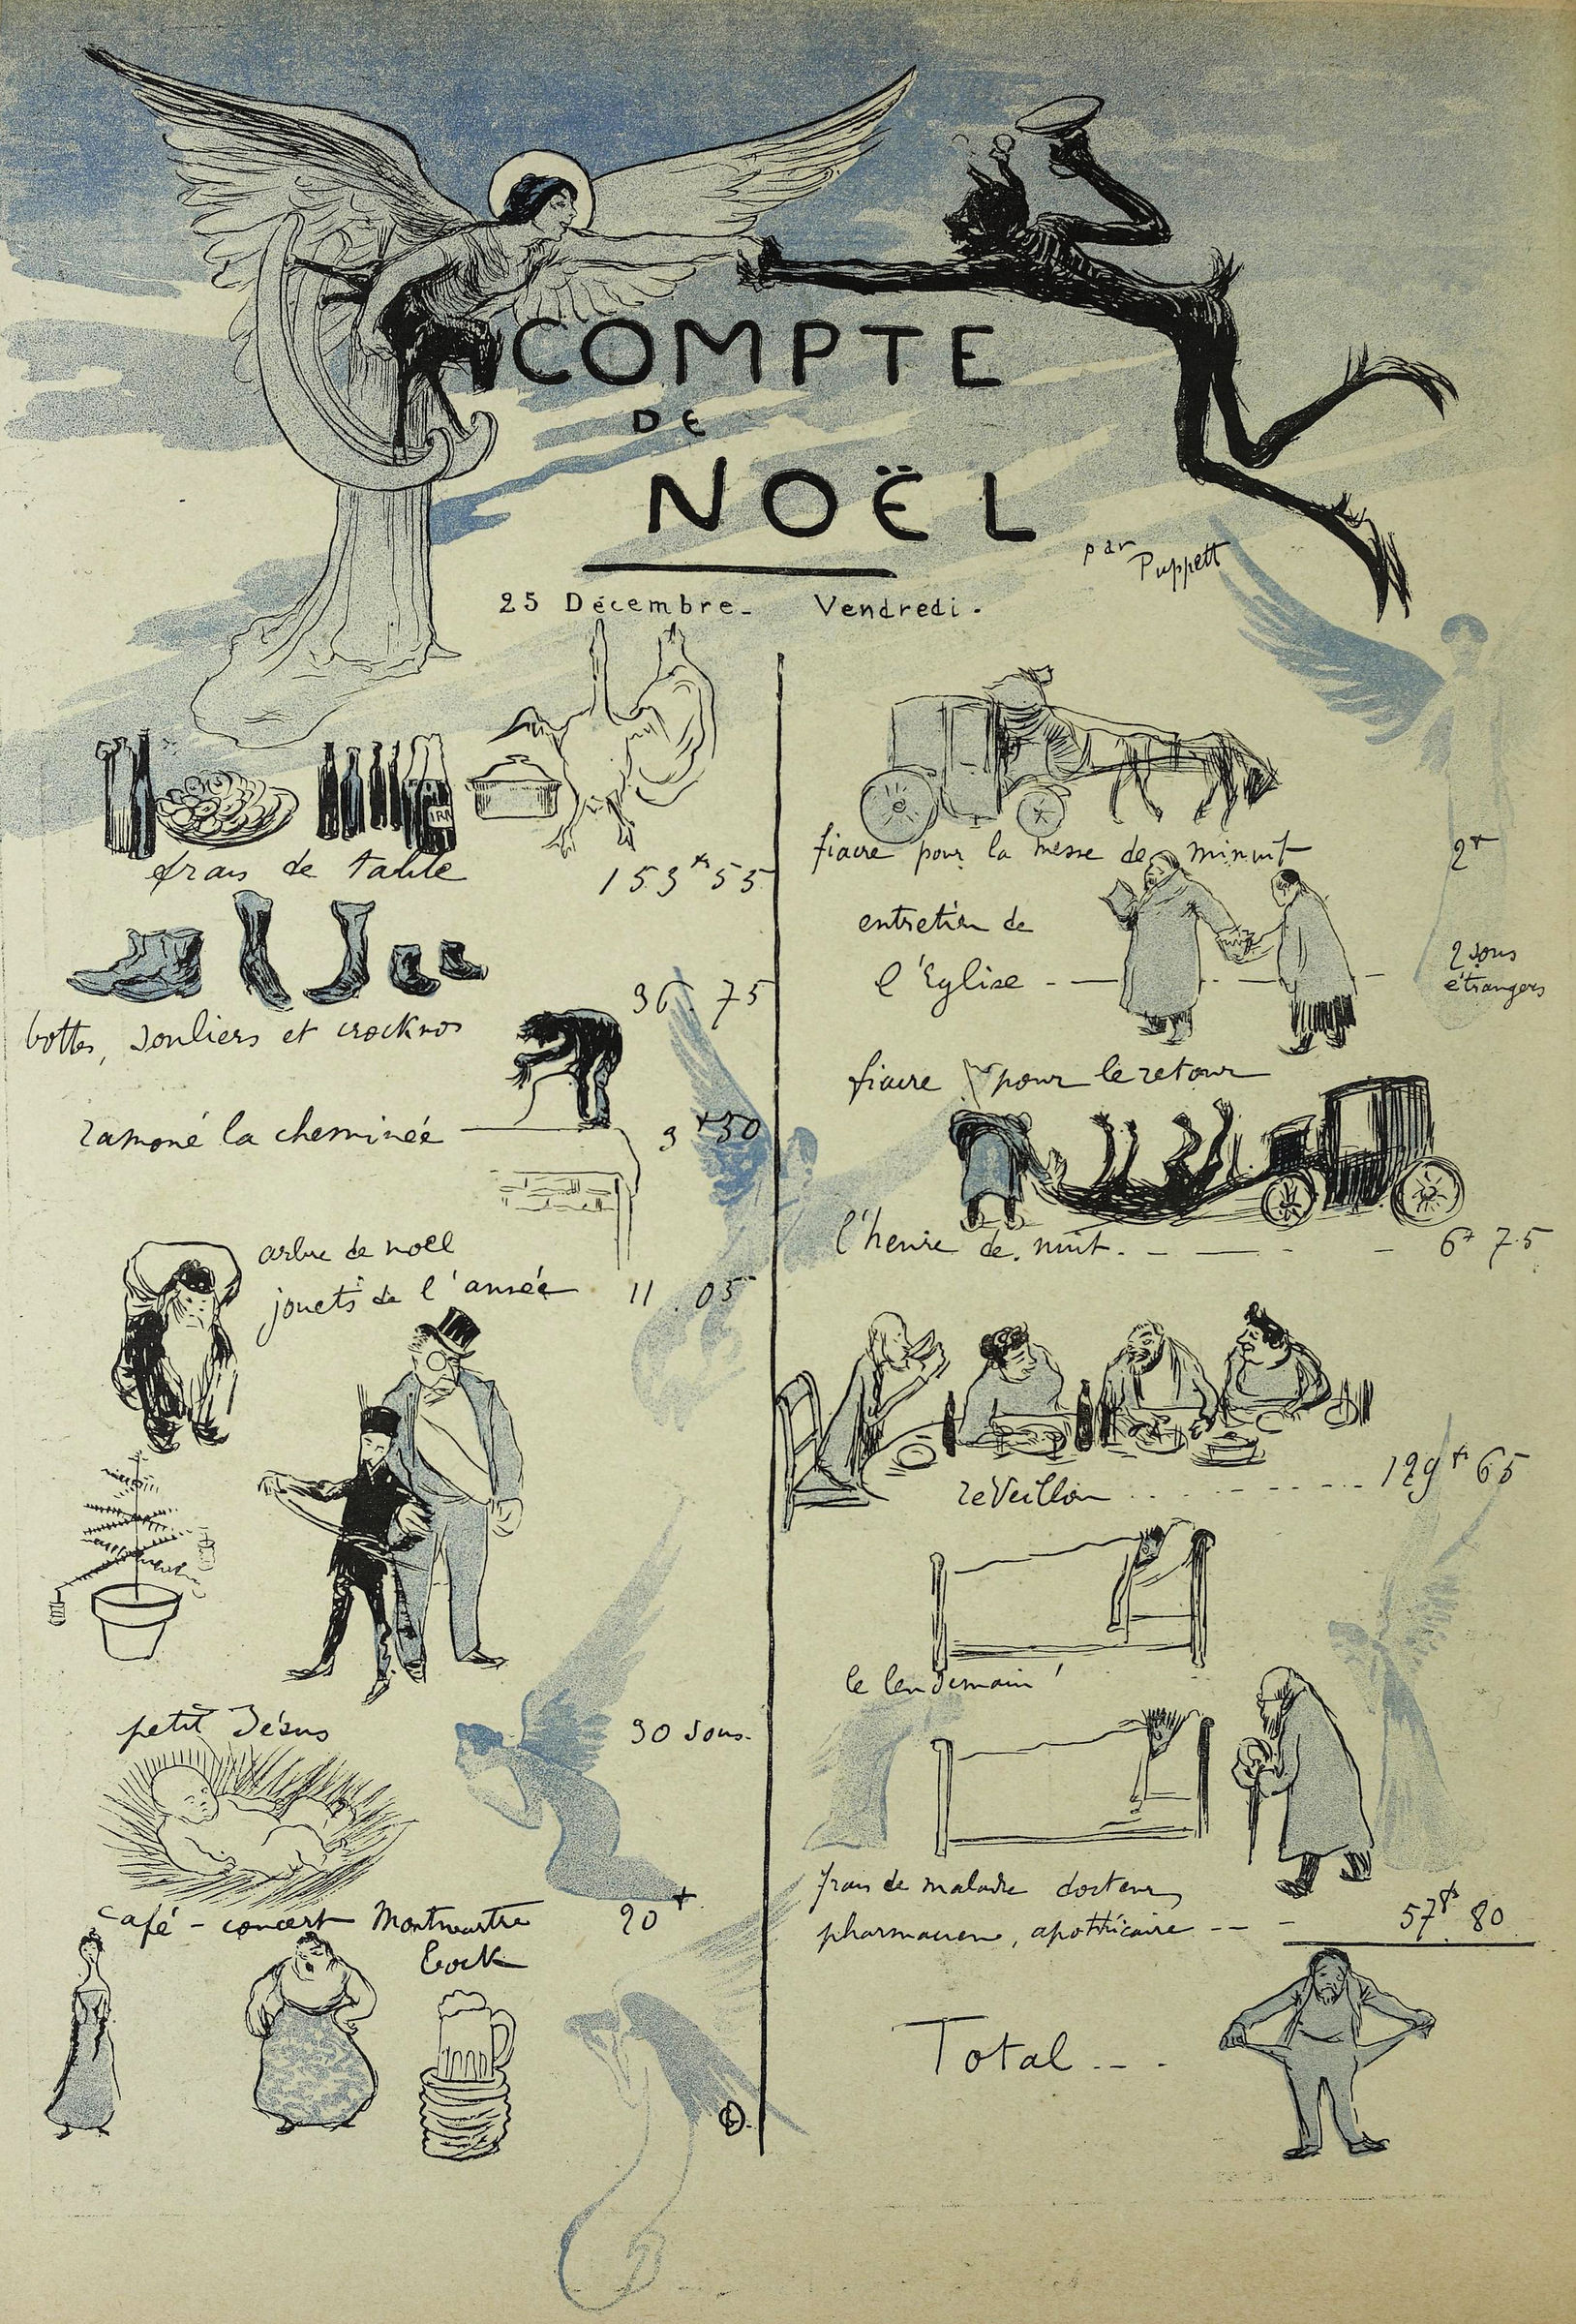 COMPTE
DE
NOËL
par
Puppett
25 Décembre_ Vendredi.
frais de table 153 frs 55
36.75
bottes, souliers et crocknos
ramoné la cheminée 3 f 50
arbre de noël
jouets de l'année 11.05
petit Jésus 30 sous.
café-concert Montmartre 20 f
bock
fiacre pour la messe de minuit 2 f
entretien de
l'Eglise - 2 sous
étrangers
fiacre pour le retour
l'heure de nuit. 6 f 75
réveillon .......... 129 frs 65
le lendemain!
frais de maladie docteur,
pharmacien, apothicaire -- - 57 frs 80
Total...